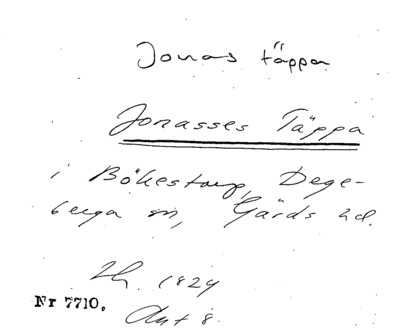 Jonas täppa
Jonasses Täppa
i Bökestorp, Dege-
berga sn, Gärds hd.
Lh. 1824
Nr 7710.
Akt 8.